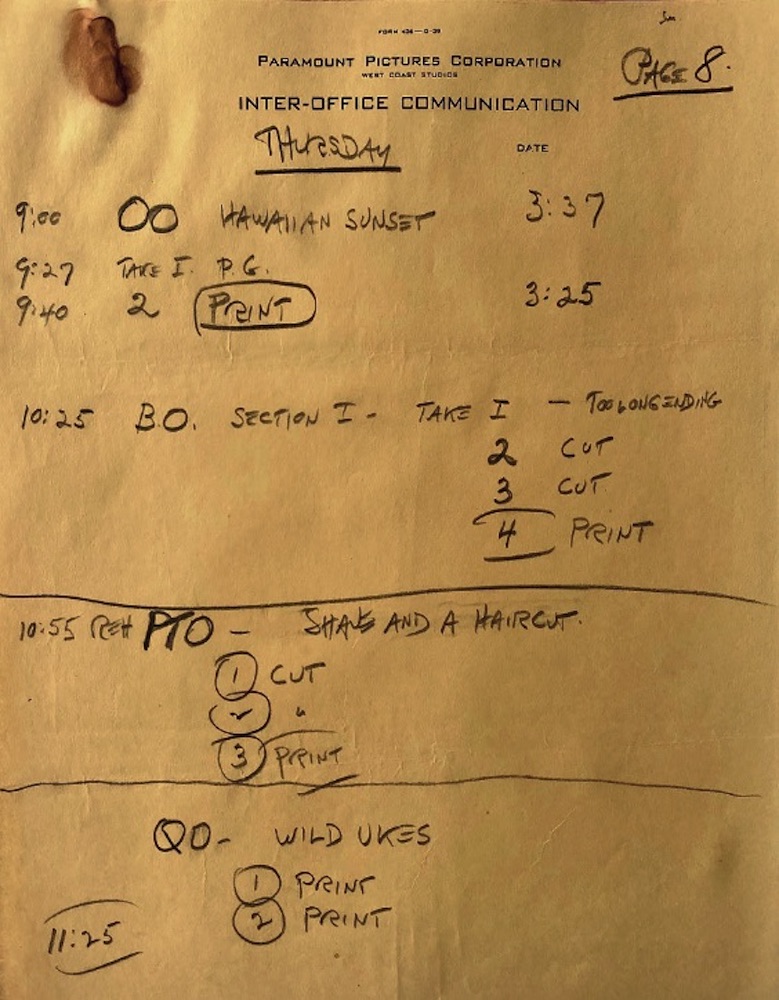 FORM 434—D-39
PARAMOUNT PICTURES CORPORATION
WEST COAST STUDIOS
PAGE 8.
INTER-OFFICE COMMUNICATION
THURSDAY
DATE
9:00 OO HAWAIIAN SUNSET 3:37
9:27 TAKE I. P.G.
9:40 2 PRINT 3:25
10:25 B.O. SECTION I - TAKE I — TOO LONG ENDING
2 CUT
3 CUT
4 PRINT
10:55 REH PTO - SHAVE AND A HAIRCUT.
1 CUT
2 "
3 PRINT
QO- WILD UKES
1 PRINT
2 PRINT
11:25